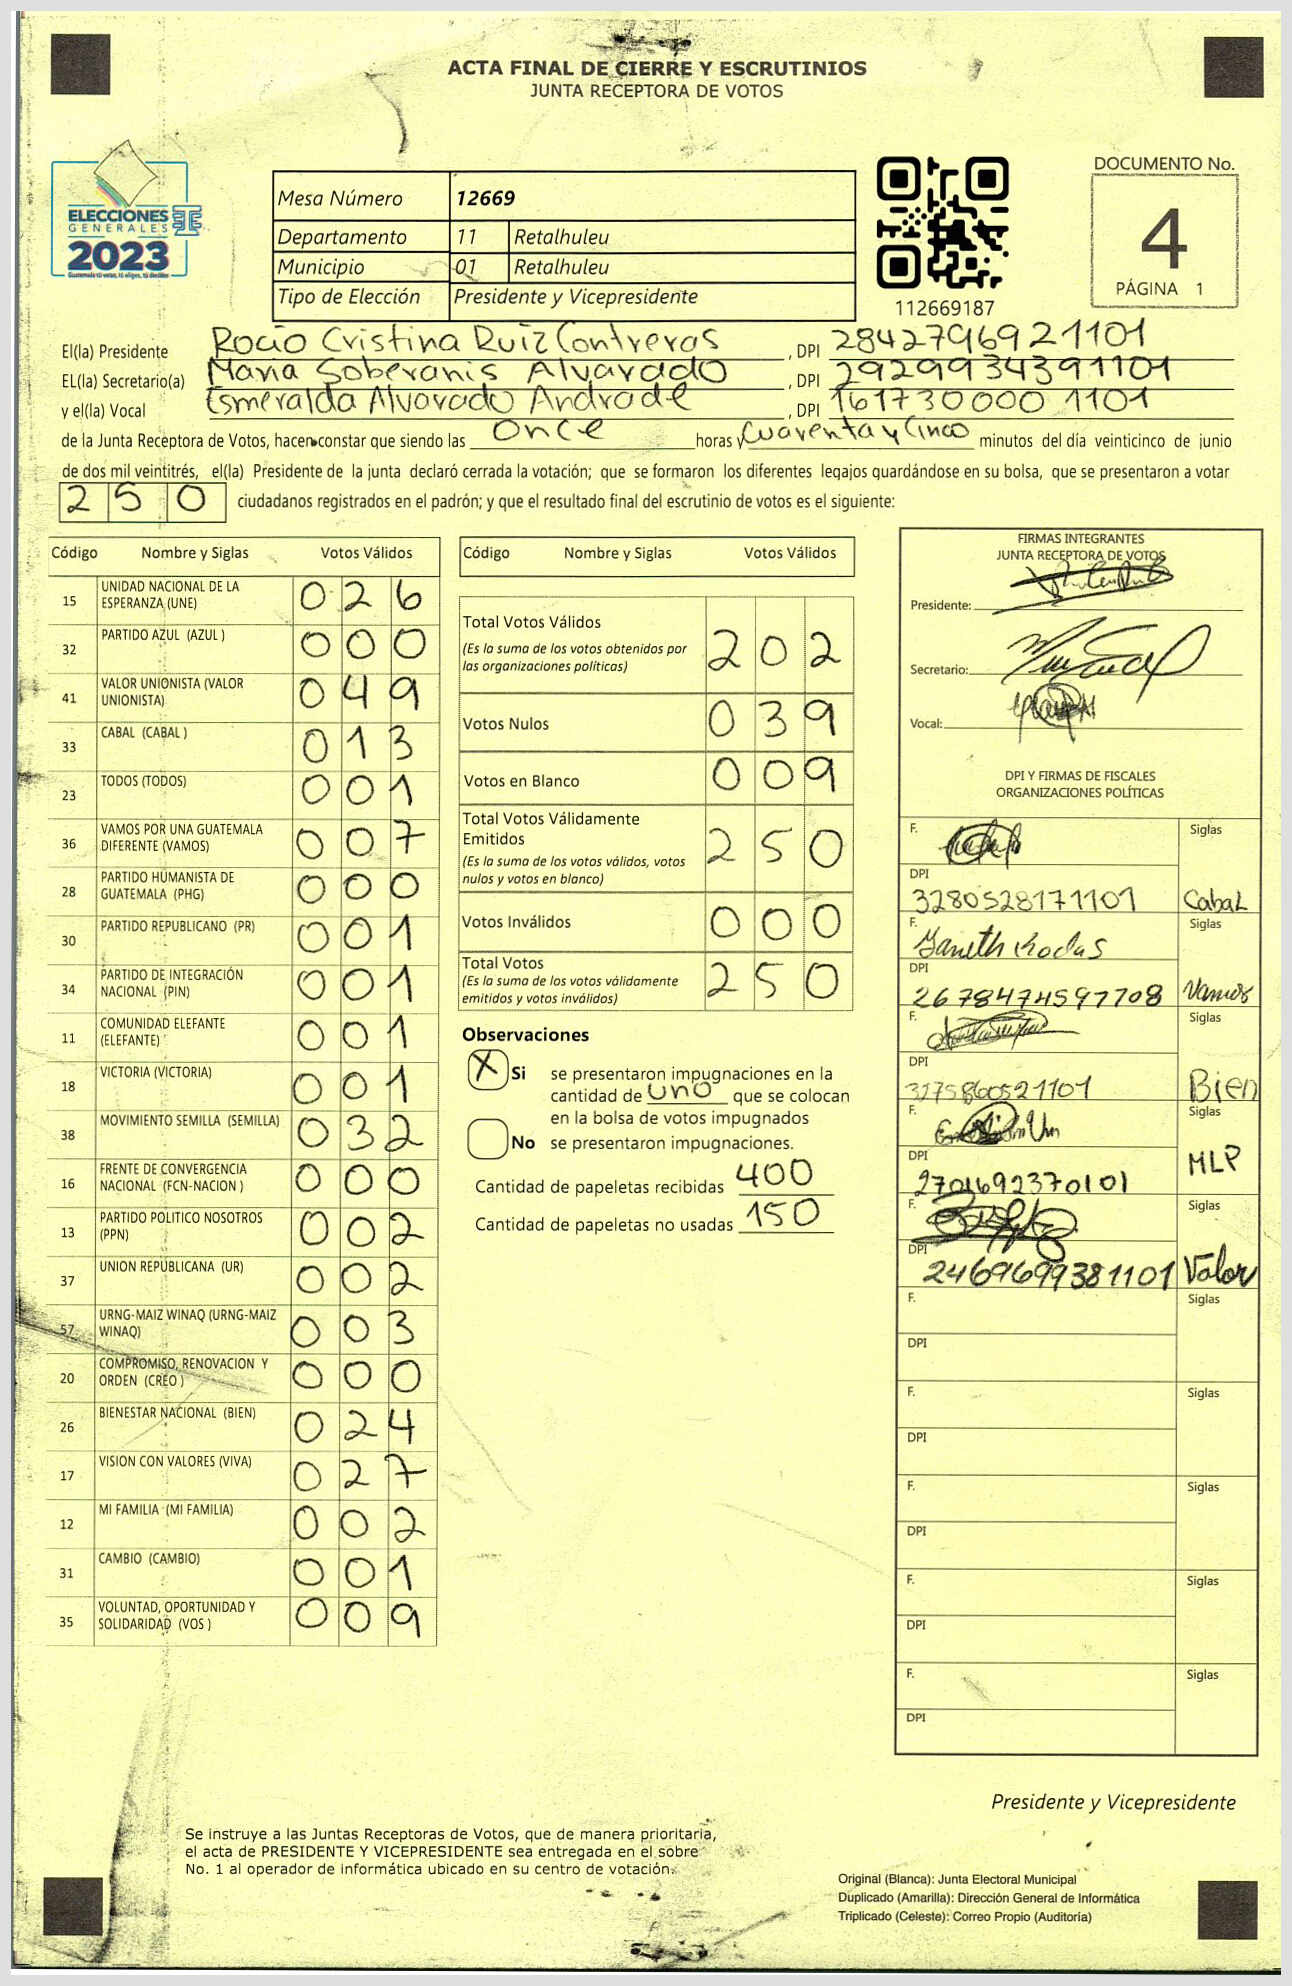 ACTA FINAL DE CIERRE Y ESCRUTINIOS
JUNTA RECEPTORA DE VOTOS
ELECCIONES
GENERALES
2023
Mesa Número 12669
Departamento 11 Retalhuleu
Municipio 01 Retalhuleu
Tipo de Elección Presidente y Vicepresidente
112669187
DOCUMENTO No.
4
PÁGINA 1
El(la) Presidente Rocio Cristina Ruiz Contreras, DPI 2842796921101
EL(la) Secretario(a) Maria Soberanis Alvarado, DPI 2929934391101
y el(la) Vocal Esmeralda Alvarado Andrade, DPI 1617300001101
de la Junta Receptora de Votos, hacen constar que siendo las once horas y Cuarenta y Cinco minutos del día veinticinco de junio
de dos mil veintitrés, el(la) Presidente de la junta declaró cerrada la votación; que se formaron los diferentes legajos guardándose en su bolsa, que se presentaron a votar
250 ciudadanos registrados en el padrón; y que el resultado final del escrutinio de votos es el siguiente:
Código Nombre y Siglas Votos Válidos
15 UNIDAD NACIONAL DE LA ESPERANZA (UNE) 026
32 PARTIDO AZUL (AZUL ) 000
41 VALOR UNIONISTA (VALOR UNIONISTA) 049
33 CABAL (CABAL ) 013
23 TODOS (TODOS) 001
36 VAMOS POR UNA GUATEMALA DIFERENTE (VAMOS) 007
28 PARTIDO HUMANISTA DE GUATEMALA (PHG) 000
30 PARTIDO REPUBLICANO (PR) 001
34 PARTIDO DE INTEGRACIÓN NACIONAL (PIN) 001
11 COMUNIDAD ELEFANTE (ELEFANTE) 001
18 VICTORIA (VICTORIA) 001
38 MOVIMIENTO SEMILLA (SEMILLA) 032
16 FRENTE DE CONVERGENCIA NACIONAL (FCN-NACION ) 000
13 PARTIDO POLITICO NOSOTROS (PPN) 002
37 UNION REPUBLICANA (UR) 002
57 URNG-MAIZ WINAQ (URNG-MAIZ WINAQ) 003
20 COMPROMISO, RENOVACION Y ORDEN (CREO ) 000
26 BIENESTAR NACIONAL (BIEN) 024
17 VISION CON VALORES (VIVA) 027
12 MI FAMILIA (MI FAMILIA) 002
31 CAMBIO (CAMBIO) 001
35 VOLUNTAD, OPORTUNIDAD Y SOLIDARIDAD (VOS ) 009
Código Nombre y Siglas Votos Válidos
Total Votos Válidos 202
(Es la suma de los votos obtenidos por
las organizaciones políticas)
Votos Nulos 039
Votos en Blanco 009
Total Votos Válidamente
Emitidos 250
(Es la suma de los votos válidos, votos
nulos y votos en blanco)
Votos Inválidos 000
Total Votos 250
(Es la suma de los votos válidamente
emitidos y votos inválidos)
Observaciones
X Si se presentaron impugnaciones en la
cantidad de uno que se colocan
en la bolsa de votos impugnados
No se presentaron impugnaciones.
Cantidad de papeletas recibidas 400
Cantidad de papeletas no usadas 150
FIRMAS INTEGRANTES
JUNTA RECEPTORA DE VOTOS
Presidente:
Secretario:
Vocal:
DPI Y FIRMAS DE FISCALES
ORGANIZACIONES POLÍTICAS
F. Siglas
DPI
3280528171101 Cabal
F. Janeth Rodas Siglas
DPI
2678474597708 Vamos
F. Siglas
DPI
3275860521101 Bien
F. Siglas
DPI
2701692370101 MLP
F. Siglas
DPI
2469699381101 Valor
F. Siglas
DPI
F. Siglas
DPI
F. Siglas
DPI
F. Siglas
DPI
F. Siglas
DPI
Presidente y Vicepresidente
Se instruye a las Juntas Receptoras de Votos, que de manera prioritaria,
el acta de PRESIDENTE Y VICEPRESIDENTE sea entregada en el sobre
No. 1 al operador de informática ubicado en su centro de votación.
Original (Blanca): Junta Electoral Municipal
Duplicado (Amarilla): Dirección General de Informática
Triplicado (Celeste): Correo Propio (Auditoría)